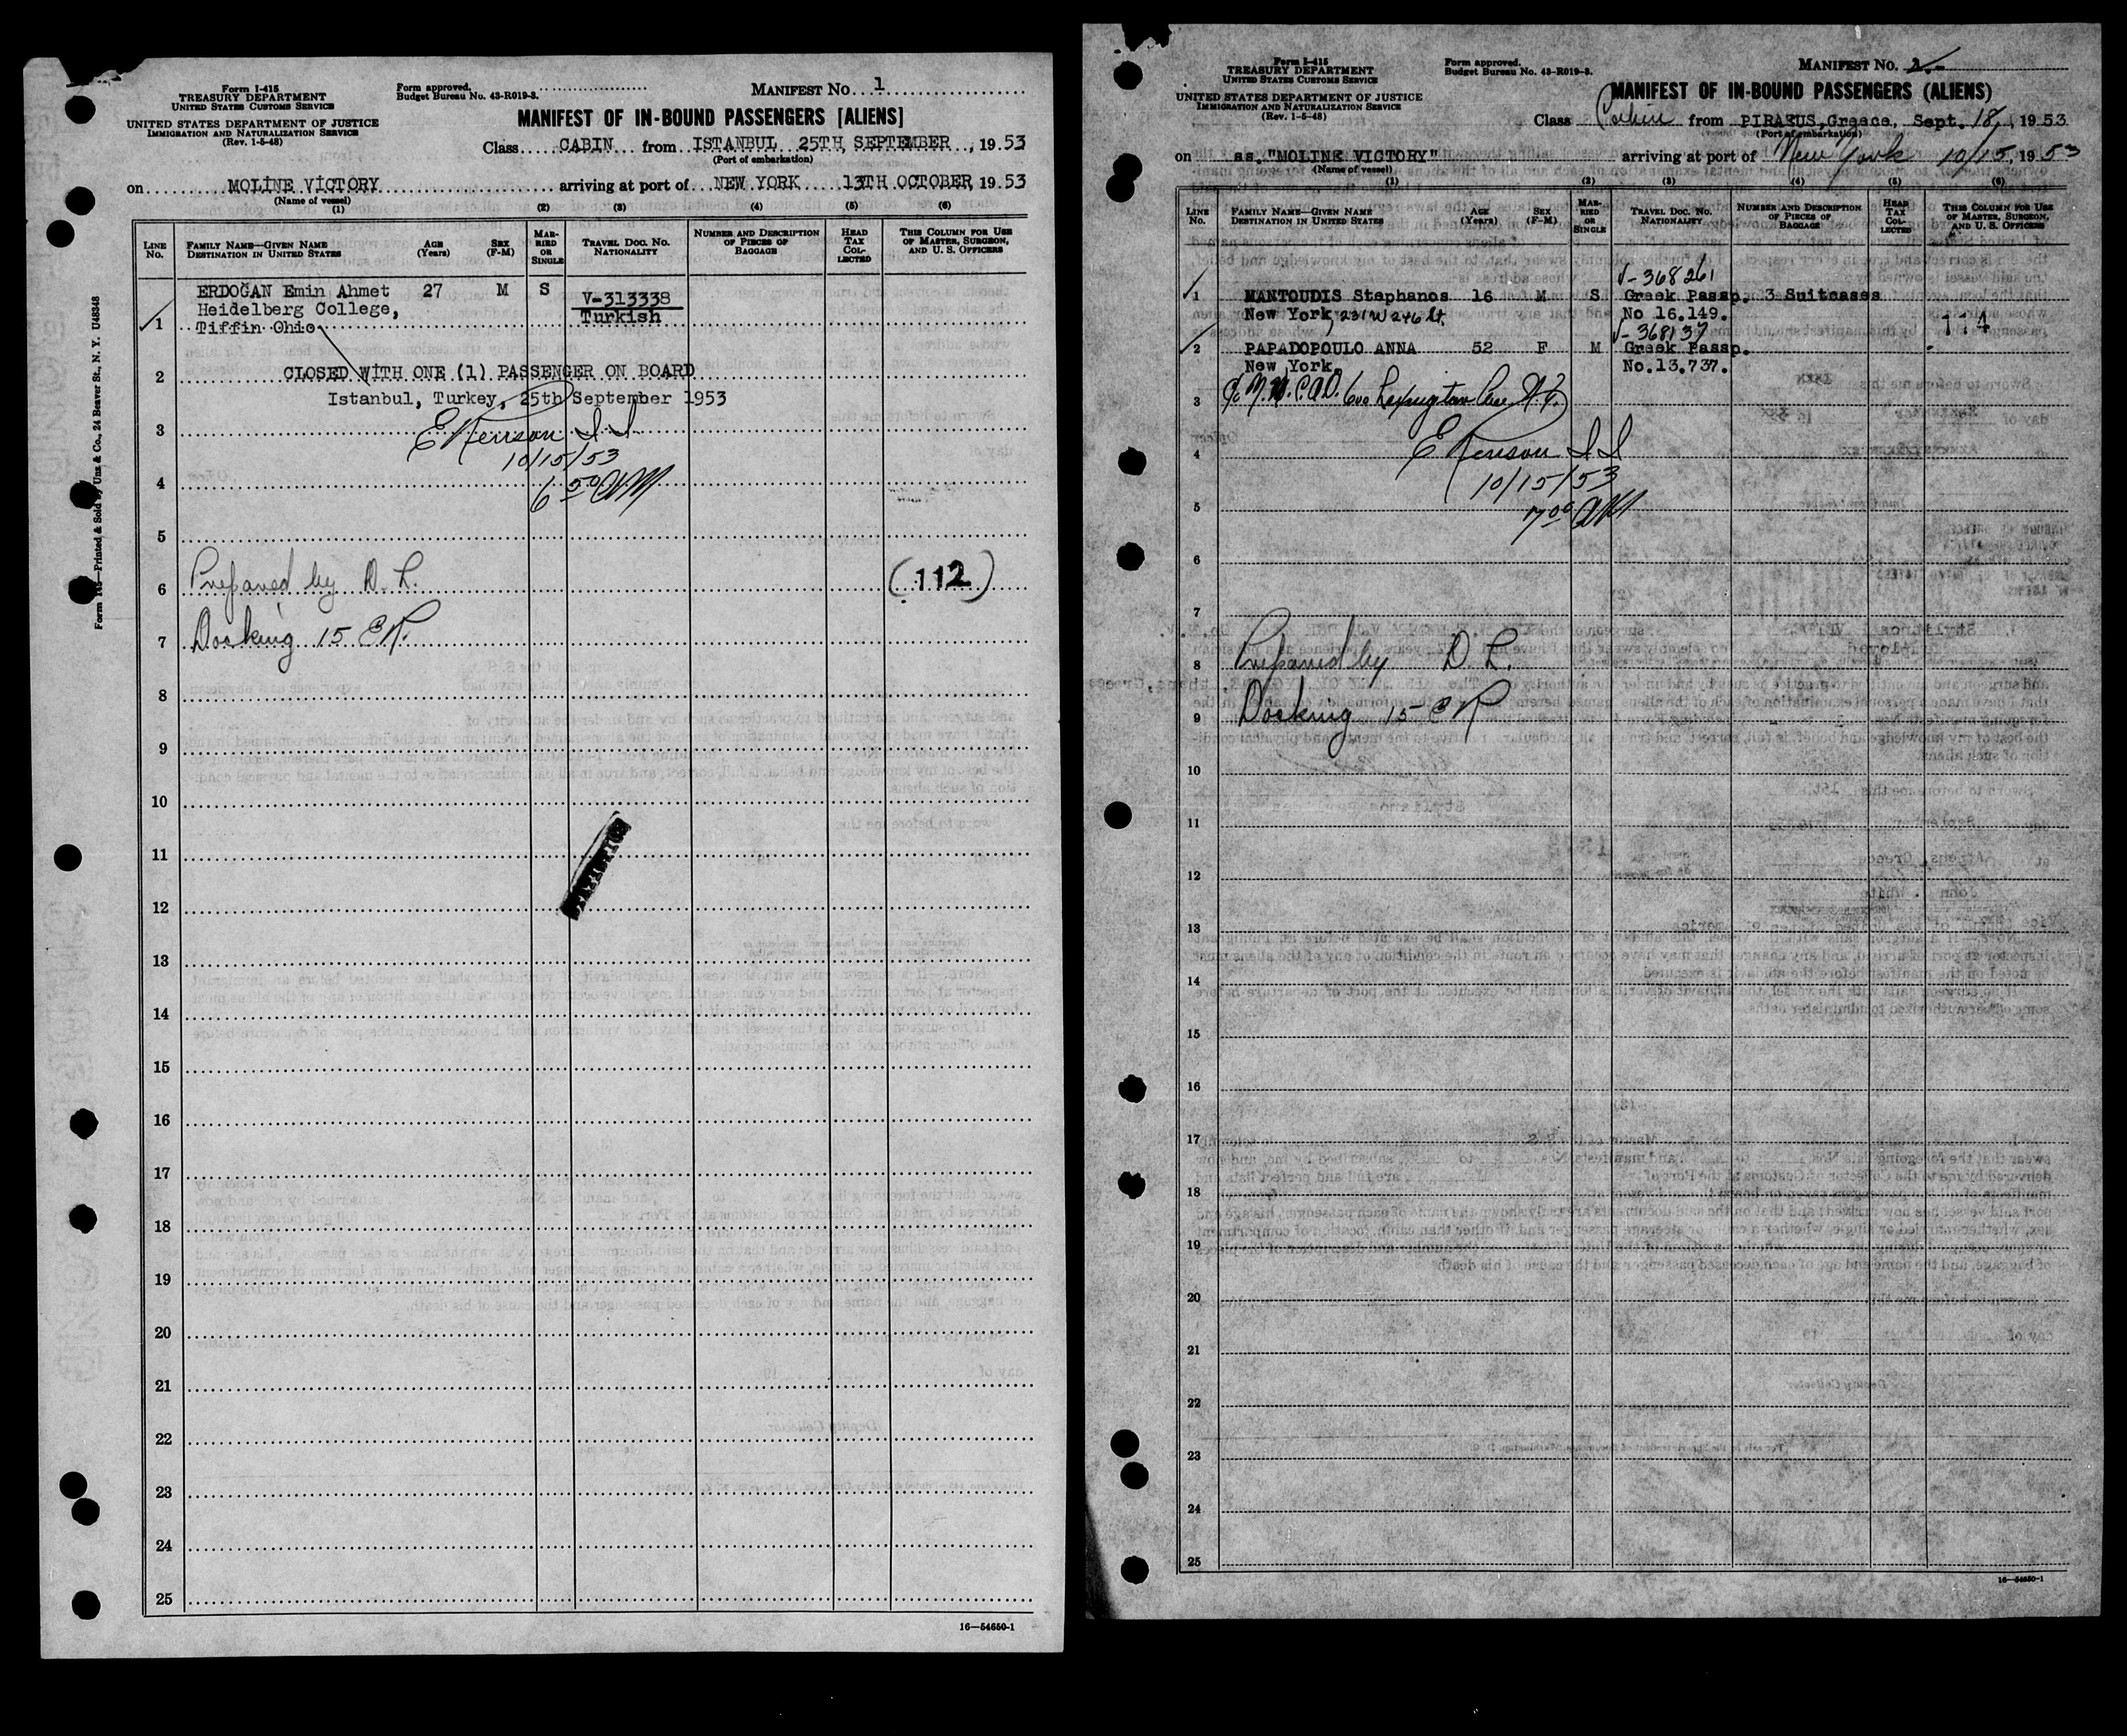 Form I-415
TREASURY DEPARTMENT
UNITED STATES CUSTOMS SERVICE
UNITED STATES DEPARTMENT OF JUSTICE
IMMIGRATION AND NATURALIZATION SERVICE
(Rev. 1-5-48)
Form approved.
Budget Bureau No. 43-R019-3.
MANIFEST NO. 1
MANIFEST OF IN-BOUND PASSENGERS [ALIENS]
Class CABIN from ISTANBUL 25TH SEPTEMBER, 1953
(Port of embarkation)
on MOLİNE VİCTORY arriving at port of NEW YORK 13TH OCTOBER, 1953
(Name of vessel)
(1) (2) (3) (4) (5) (6)
LINE NO.
FAMILY NAME—GIVEN NAME
DESTINATION IN UNITED STATES
AGE (Years)
SEX (F-M)
MARRIED OR SINGLE
TRAVEL DOC. NO.
NATIONALITY
NUMBER AND DESCRIPTION OF PIECES OF BAGGAGE
HEAD TAX COLLECTED
THIS COLUMN FOR USE OF MASTER, SURGEON, AND U. S. OFFICERS
ERDOĞAN Emin Ahmet 27 M S V-313338
Heidelberg College, Turkish
1 Tiffin Ohio
2 CLOSED WİTH ONE (1) PASSENGER ON BOARD
Istanbul, Turkey, 25th September 1953
3
10/15/53
4 6 50 AM
5
6 Prepared by D. L. (112)
7 Docking 15 E.R.
8
9
10
11
12
13
14
15
16
17
18
19
20
21
22
23
24
25
16—54650-1
Form 145—Printed & Sold by Unz & Co., 24 Beaver St., N. Y. U48348
Form I-415
TREASURY DEPARTMENT
UNITED STATES CUSTOMS SERVICE
UNITED STATES DEPARTMENT OF JUSTICE
IMMIGRATION AND NATURALIZATION SERVICE
(Rev. 1-5-48)
Form approved.
Budget Bureau No. 43-R019-3.
MANIFEST NO. 2.-
MANIFEST OF IN-BOUND PASSENGERS (ALIENS)
Class Cabin from PIRAEUS, Greece, Sept. 18, 1953
(Port of embarkation)
on ss. "MOLINE VICTORY" arriving at port of New York 10/15, 1953
(Name of vessel)
(1) (2) (3) (4) (5) (6)
LINE NO.
FAMILY NAME—GIVEN NAME
DESTINATION IN UNITED STATES
AGE (Years)
SEX (F-M)
MARRIED OR SINGLE
TRAVEL DOC. NO.
NATIONALITY
NUMBER AND DESCRIPTION OF PIECES OF BAGGAGE
HEAD TAX COLLECTED
THIS COLUMN FOR USE OF MASTER, SURGEON, AND U. S. OFFICERS
V-368261
1 MANTOUDIS Stephanos 16 M S Greek Passp. 3 Suitcases
New York, 231 W 246 St. No 16.149. 114
V-368137
2 PAPADOPOULO ANNA 52 F M Greek Passp.
New York. No.13.737.
3 Lexington Ave N.Y.
4
10/15/53
5 7 00 AM
6
7
8 Prepared by D. L.
9 Docking 15 E R
10
11
12
13
14
15
16
17
18
19
20
21
22
23
24
25
16—54650-1